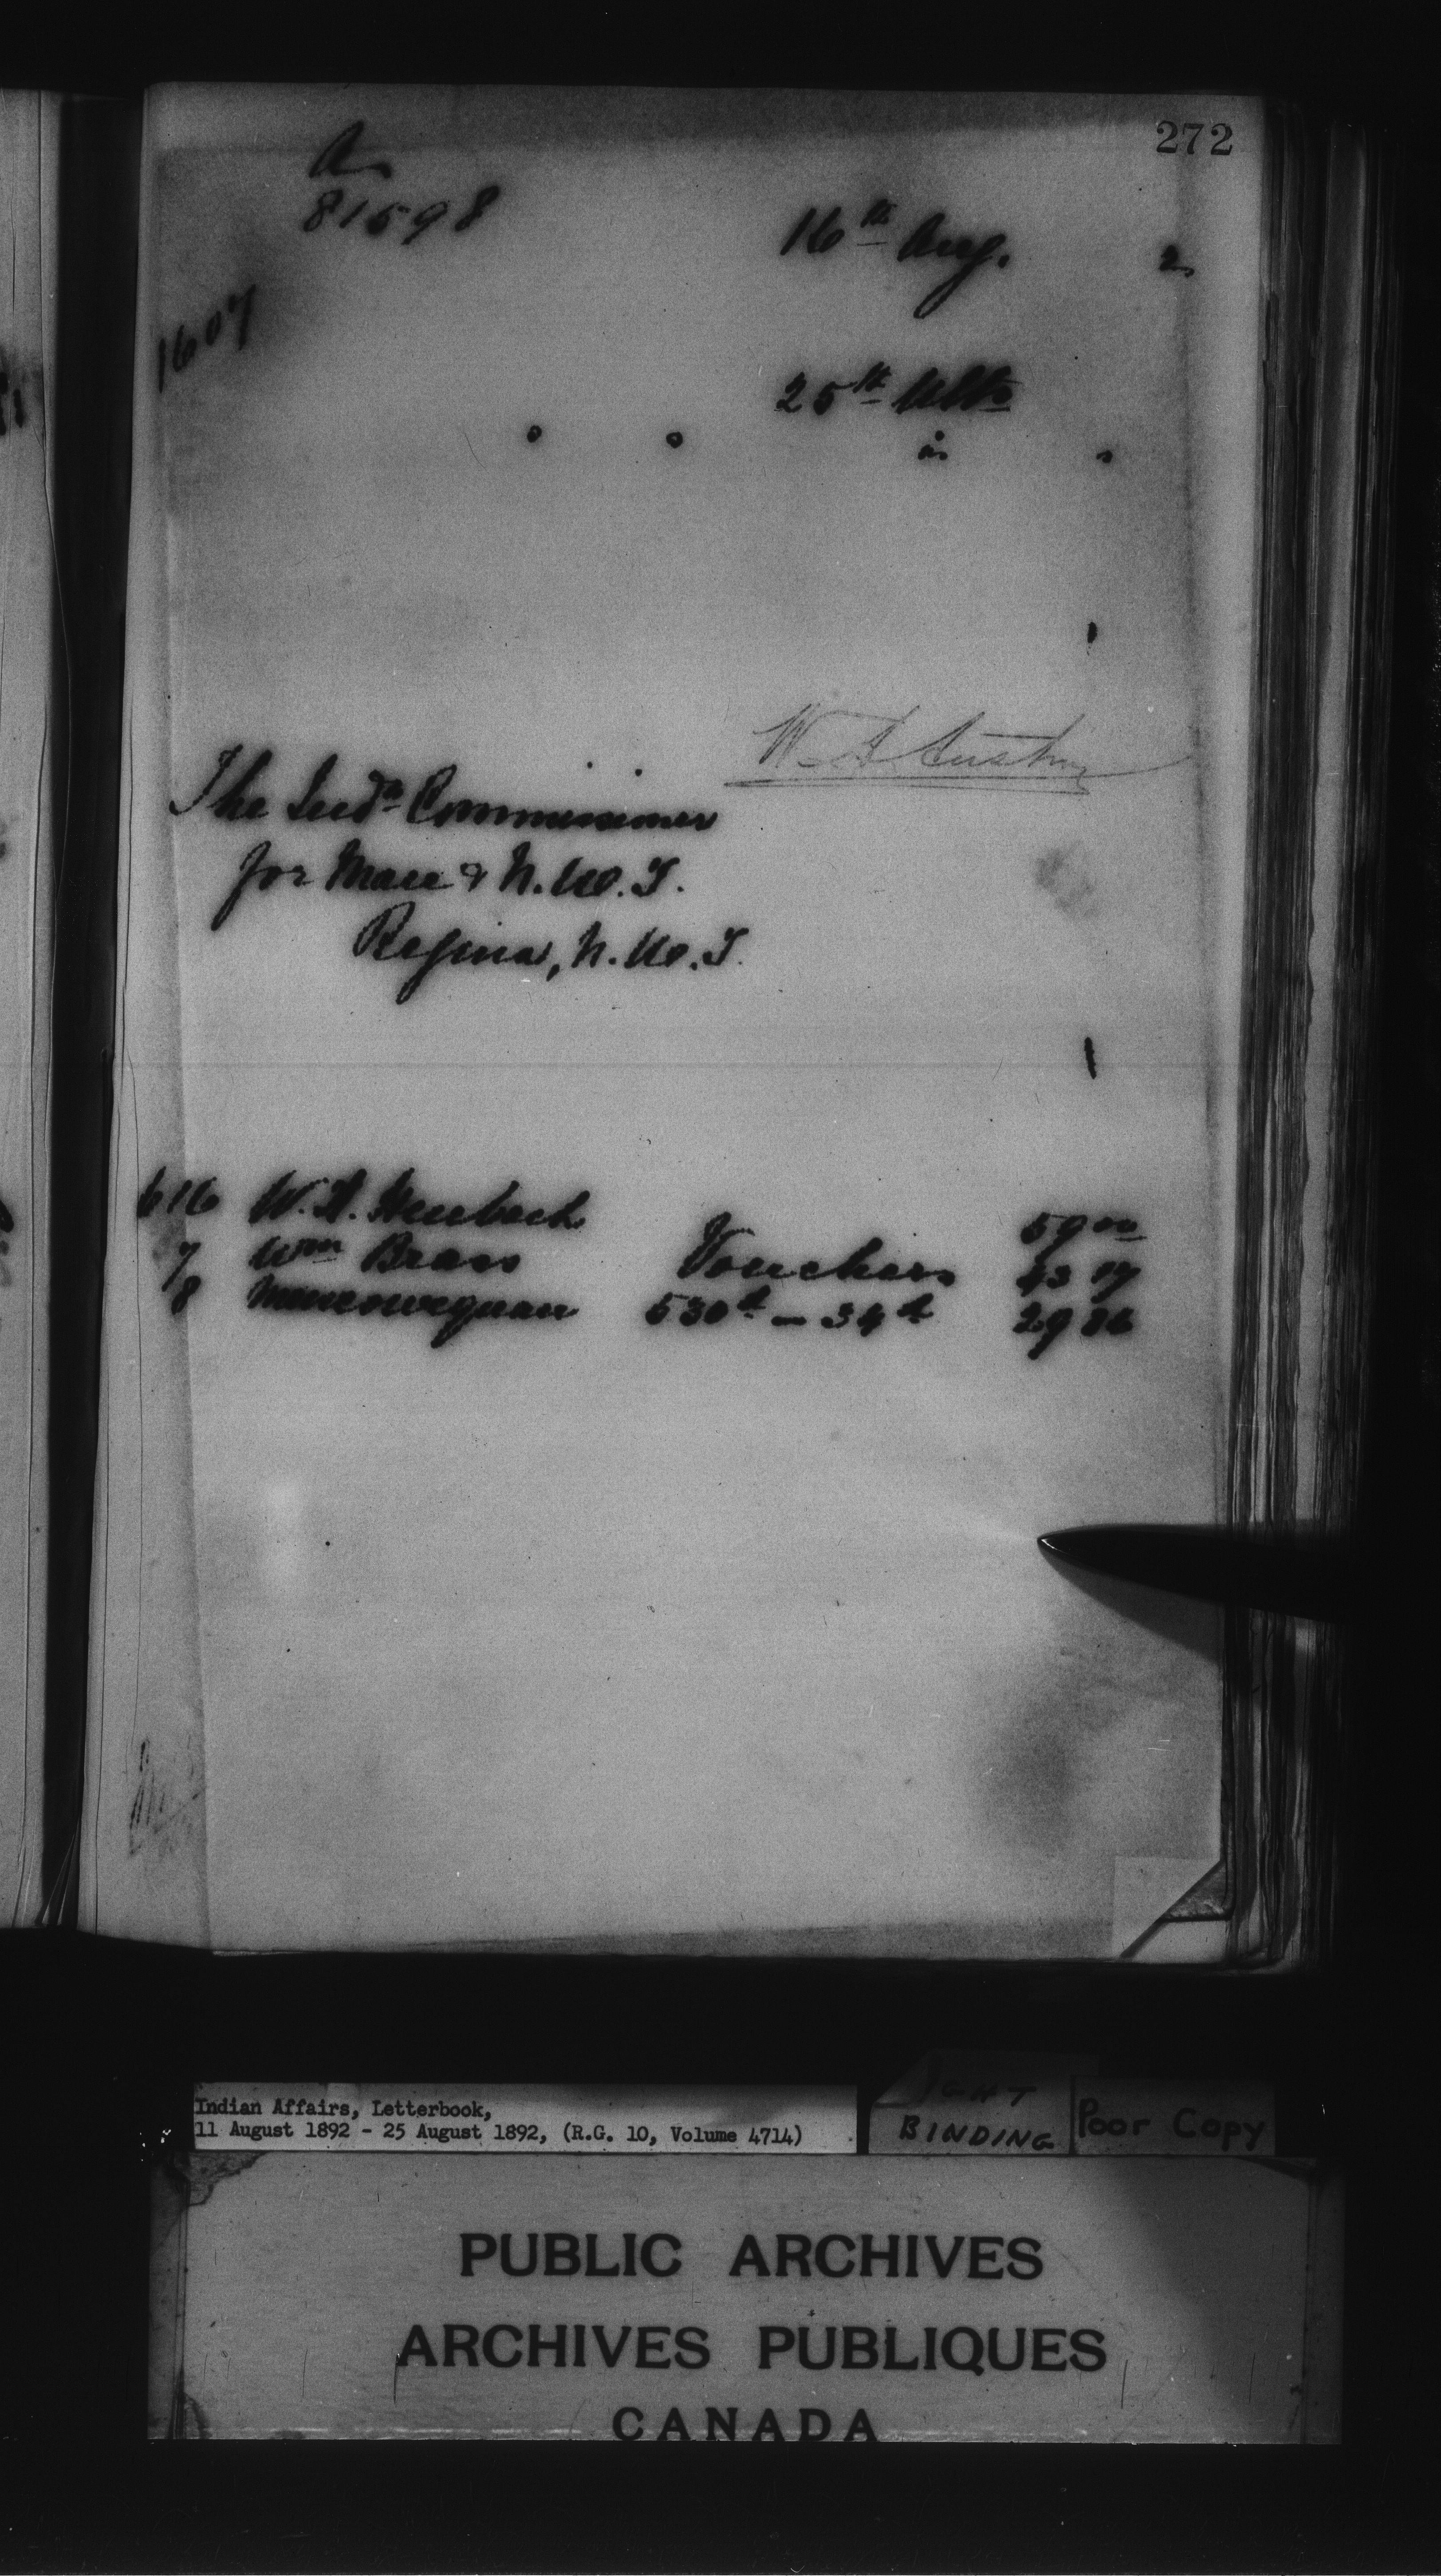 272
A
81598
16th Aug. 2
1607
25th Ulto
is
W A Austin
The Indn Commissioner
for Man & N.W.T.
Regina, N.W.T.
616 W. A. Heubach 59 00
7 Wm Brass Vouchers 43 17
8 530d - 34d
Indian Affairs, Letterbook,
11 August 1892 - 25 August 1892, (R.G. 10, Volume 4714)
IGHT
BINDING
Poor Copy
PUBLIC ARCHIVES
ARCHIVES PUBLIQUES
CANADA